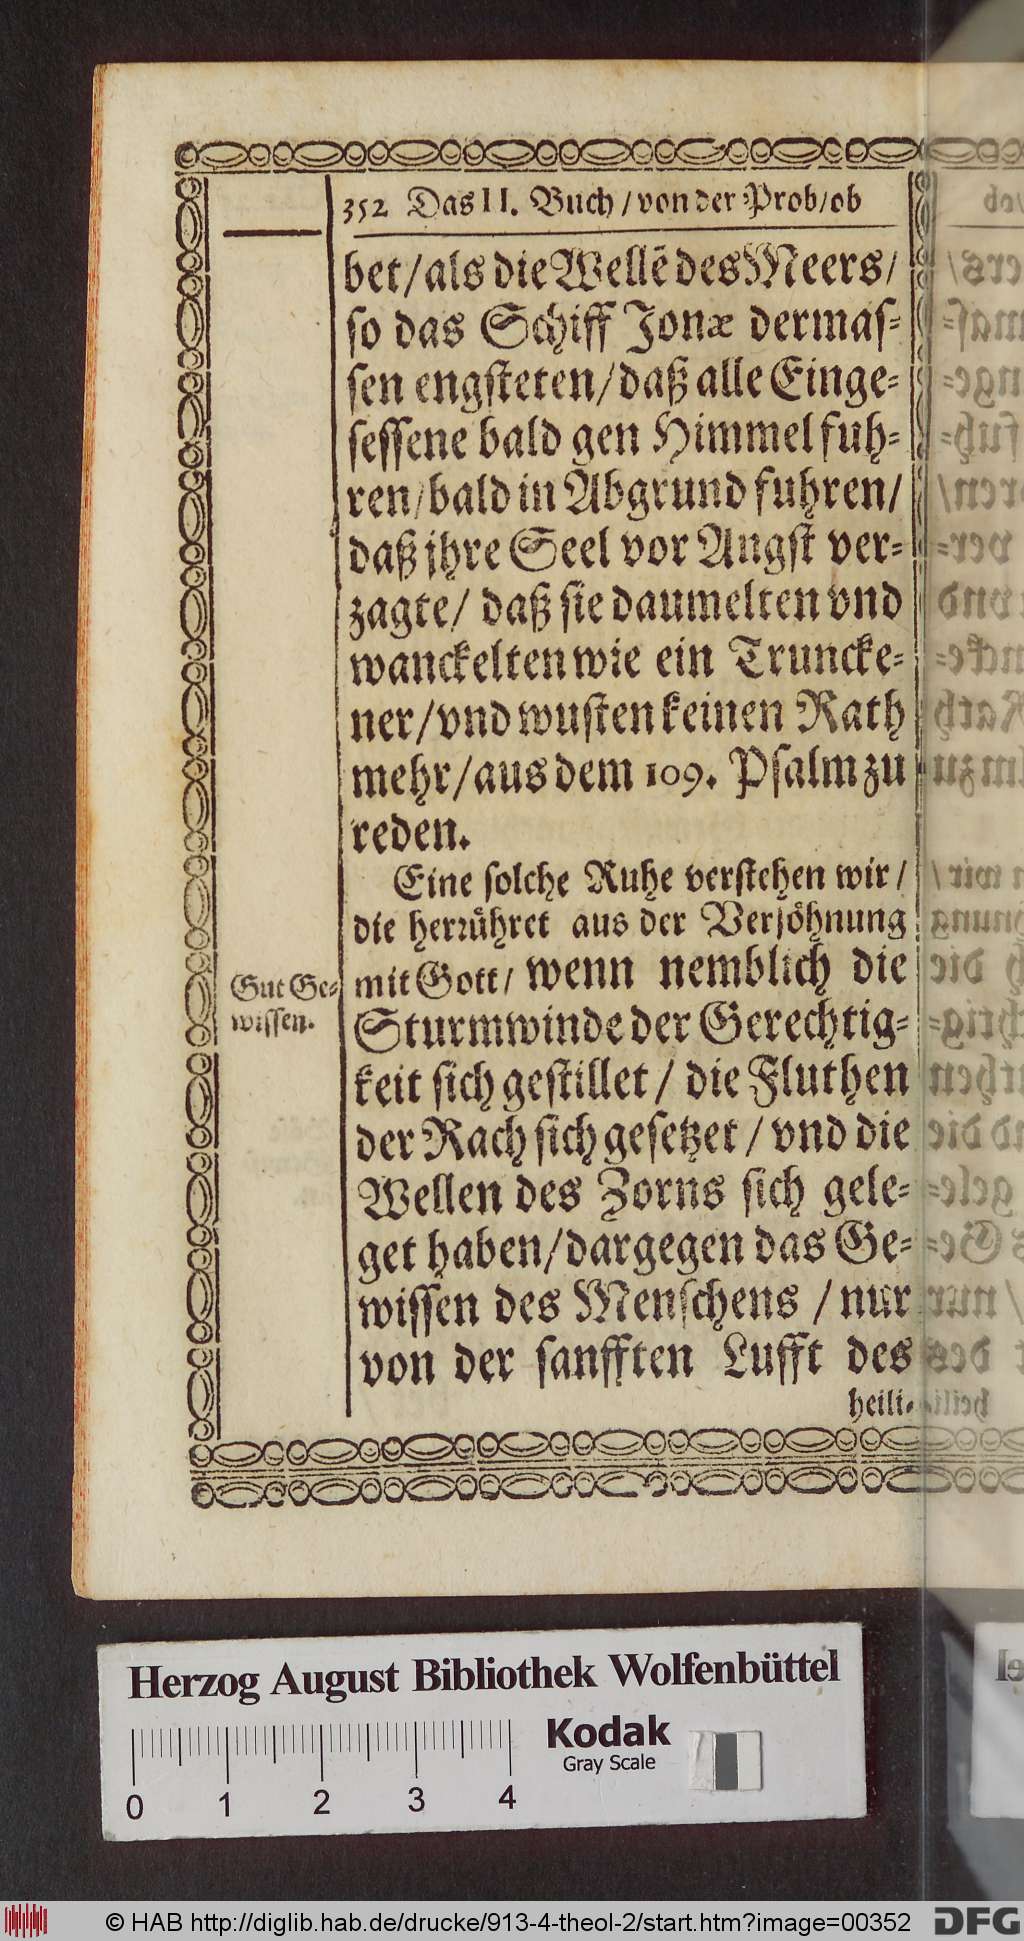 352 Das II. Buch / von der Prob / ob
bet / als die Wellē des Meers /
so das Schiff Jonæ dermas-
sen engsteten / daß alle Einge-
sessene bald gen Himmel fuh-
ren / bald in Abgrund fuhren /
daß jhre Seel vor Angst ver-
zagte / daß sie daumelten vnd
wanckelten wie ein Truncke-
ner / vnd wusten keinen Rath
mehr / aus dem 109. Psalm zu
reden.
Eine solche Ruhe verstehen wir /
die herrühret aus der Versöhnung
Gut Ge-
wissen.
mit Gott / wenn nemblich die
Sturmwinde der Gerechtig-
keit sich gestillet / die Fluthen
der Rach sich gesetzet / vnd die
Wellen des Zorns sich gele-
get haben / dargegen das Ge-
wissen des Menschens / nur
von der sanfften Lufft des
heili-
Herzog August Bibliothek Wolfenbüttel
Kodak
Gray Scale
0 1 2 3 4
© HAB http://diglib.hab.de/drucke/913-4-theol-2/start.htm?image=00352
DFG